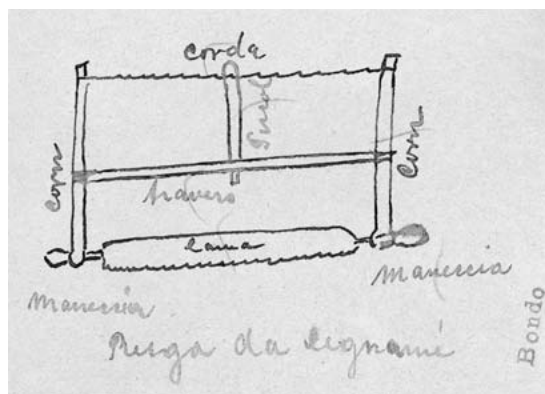 corda
Corn
Corn
travers
lama
Maneccia
Maneccia
Resga da legnamé
Bondo